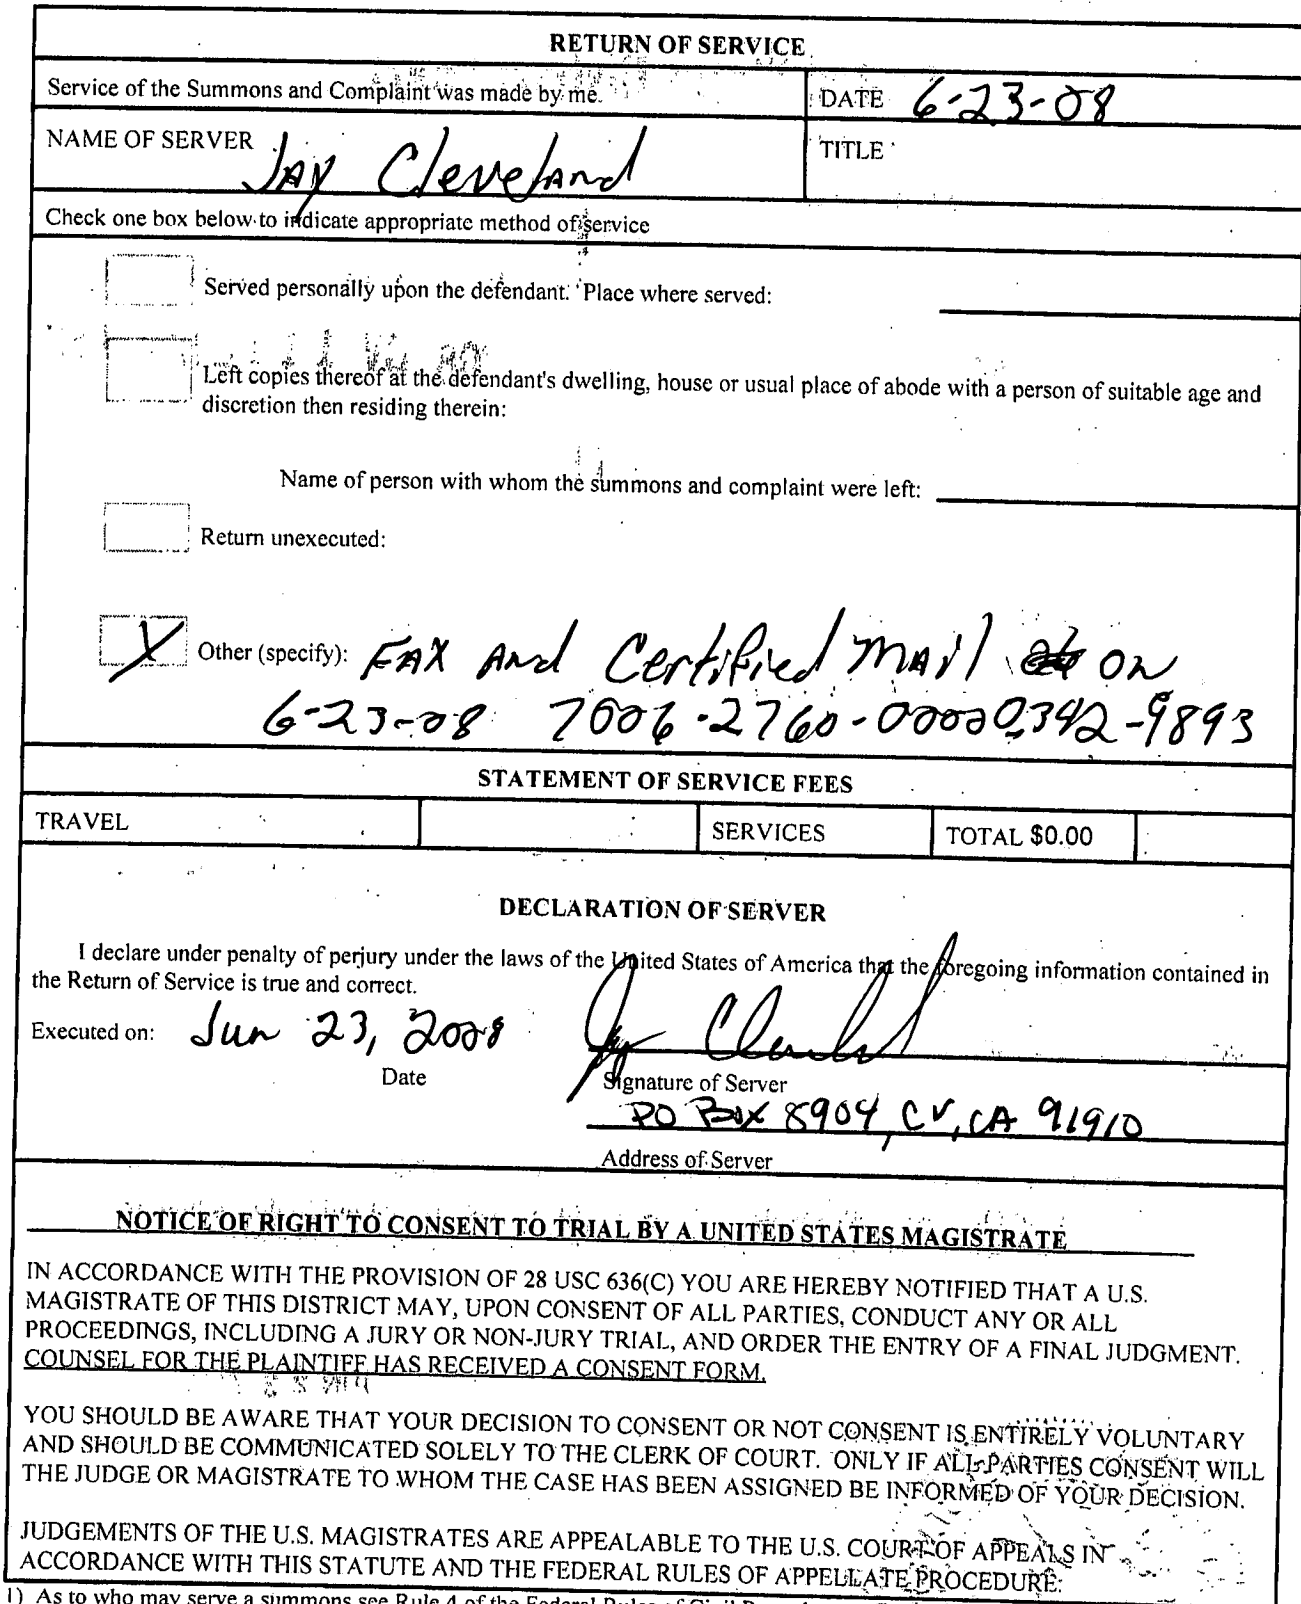 RETURN OF SERVICE
Service of the Summons and Complaint was made by me.
DATE 6-23-08
NAME OF SERVER Jay Cleveland
TITLE
Check one box below to indicate appropriate method of service
Served personally upon the defendant. Place where served:
Left copies thereof at the defendant's dwelling, house or usual place of abode with a person of suitable age and
discretion then residing therein:
Name of person with whom the summons and complaint were left:
Return unexecuted:
X Other (specify): FAX And Certified Mail on
6-23-08 7006-2760-0000 0342-9893
STATEMENT OF SERVICE FEES
TRAVEL
SERVICES
TOTAL $0.00
DECLARATION OF SERVER
I declare under penalty of perjury under the laws of the United States of America that the foregoing information contained in
the Return of Service is true and correct.
Executed on: Jun 23, 2008
Date
Signature of Server
PO Box 8904, CV, CA 91910
Address of Server
NOTICE OF RIGHT TO CONSENT TO TRIAL BY A UNITED STATES MAGISTRATE
IN ACCORDANCE WITH THE PROVISION OF 28 USC 636(C) YOU ARE HEREBY NOTIFIED THAT A U.S.
MAGISTRATE OF THIS DISTRICT MAY, UPON CONSENT OF ALL PARTIES, CONDUCT ANY OR ALL
PROCEEDINGS, INCLUDING A JURY OR NON-JURY TRIAL, AND ORDER THE ENTRY OF A FINAL JUDGMENT.
COUNSEL FOR THE PLAINTIFF HAS RECEIVED A CONSENT FORM.
YOU SHOULD BE AWARE THAT YOUR DECISION TO CONSENT OR NOT CONSENT IS ENTIRELY VOLUNTARY
AND SHOULD BE COMMUNICATED SOLELY TO THE CLERK OF COURT. ONLY IF ALL PARTIES CONSENT WILL
THE JUDGE OR MAGISTRATE TO WHOM THE CASE HAS BEEN ASSIGNED BE INFORMED OF YOUR DECISION.
JUDGEMENTS OF THE U.S. MAGISTRATES ARE APPEALABLE TO THE U.S. COURT OF APPEALS IN
ACCORDANCE WITH THIS STATUTE AND THE FEDERAL RULES OF APPELLATE PROCEDURE.
1) As to who may serve a summons see Rule 4 of the Federal Rules of Civil